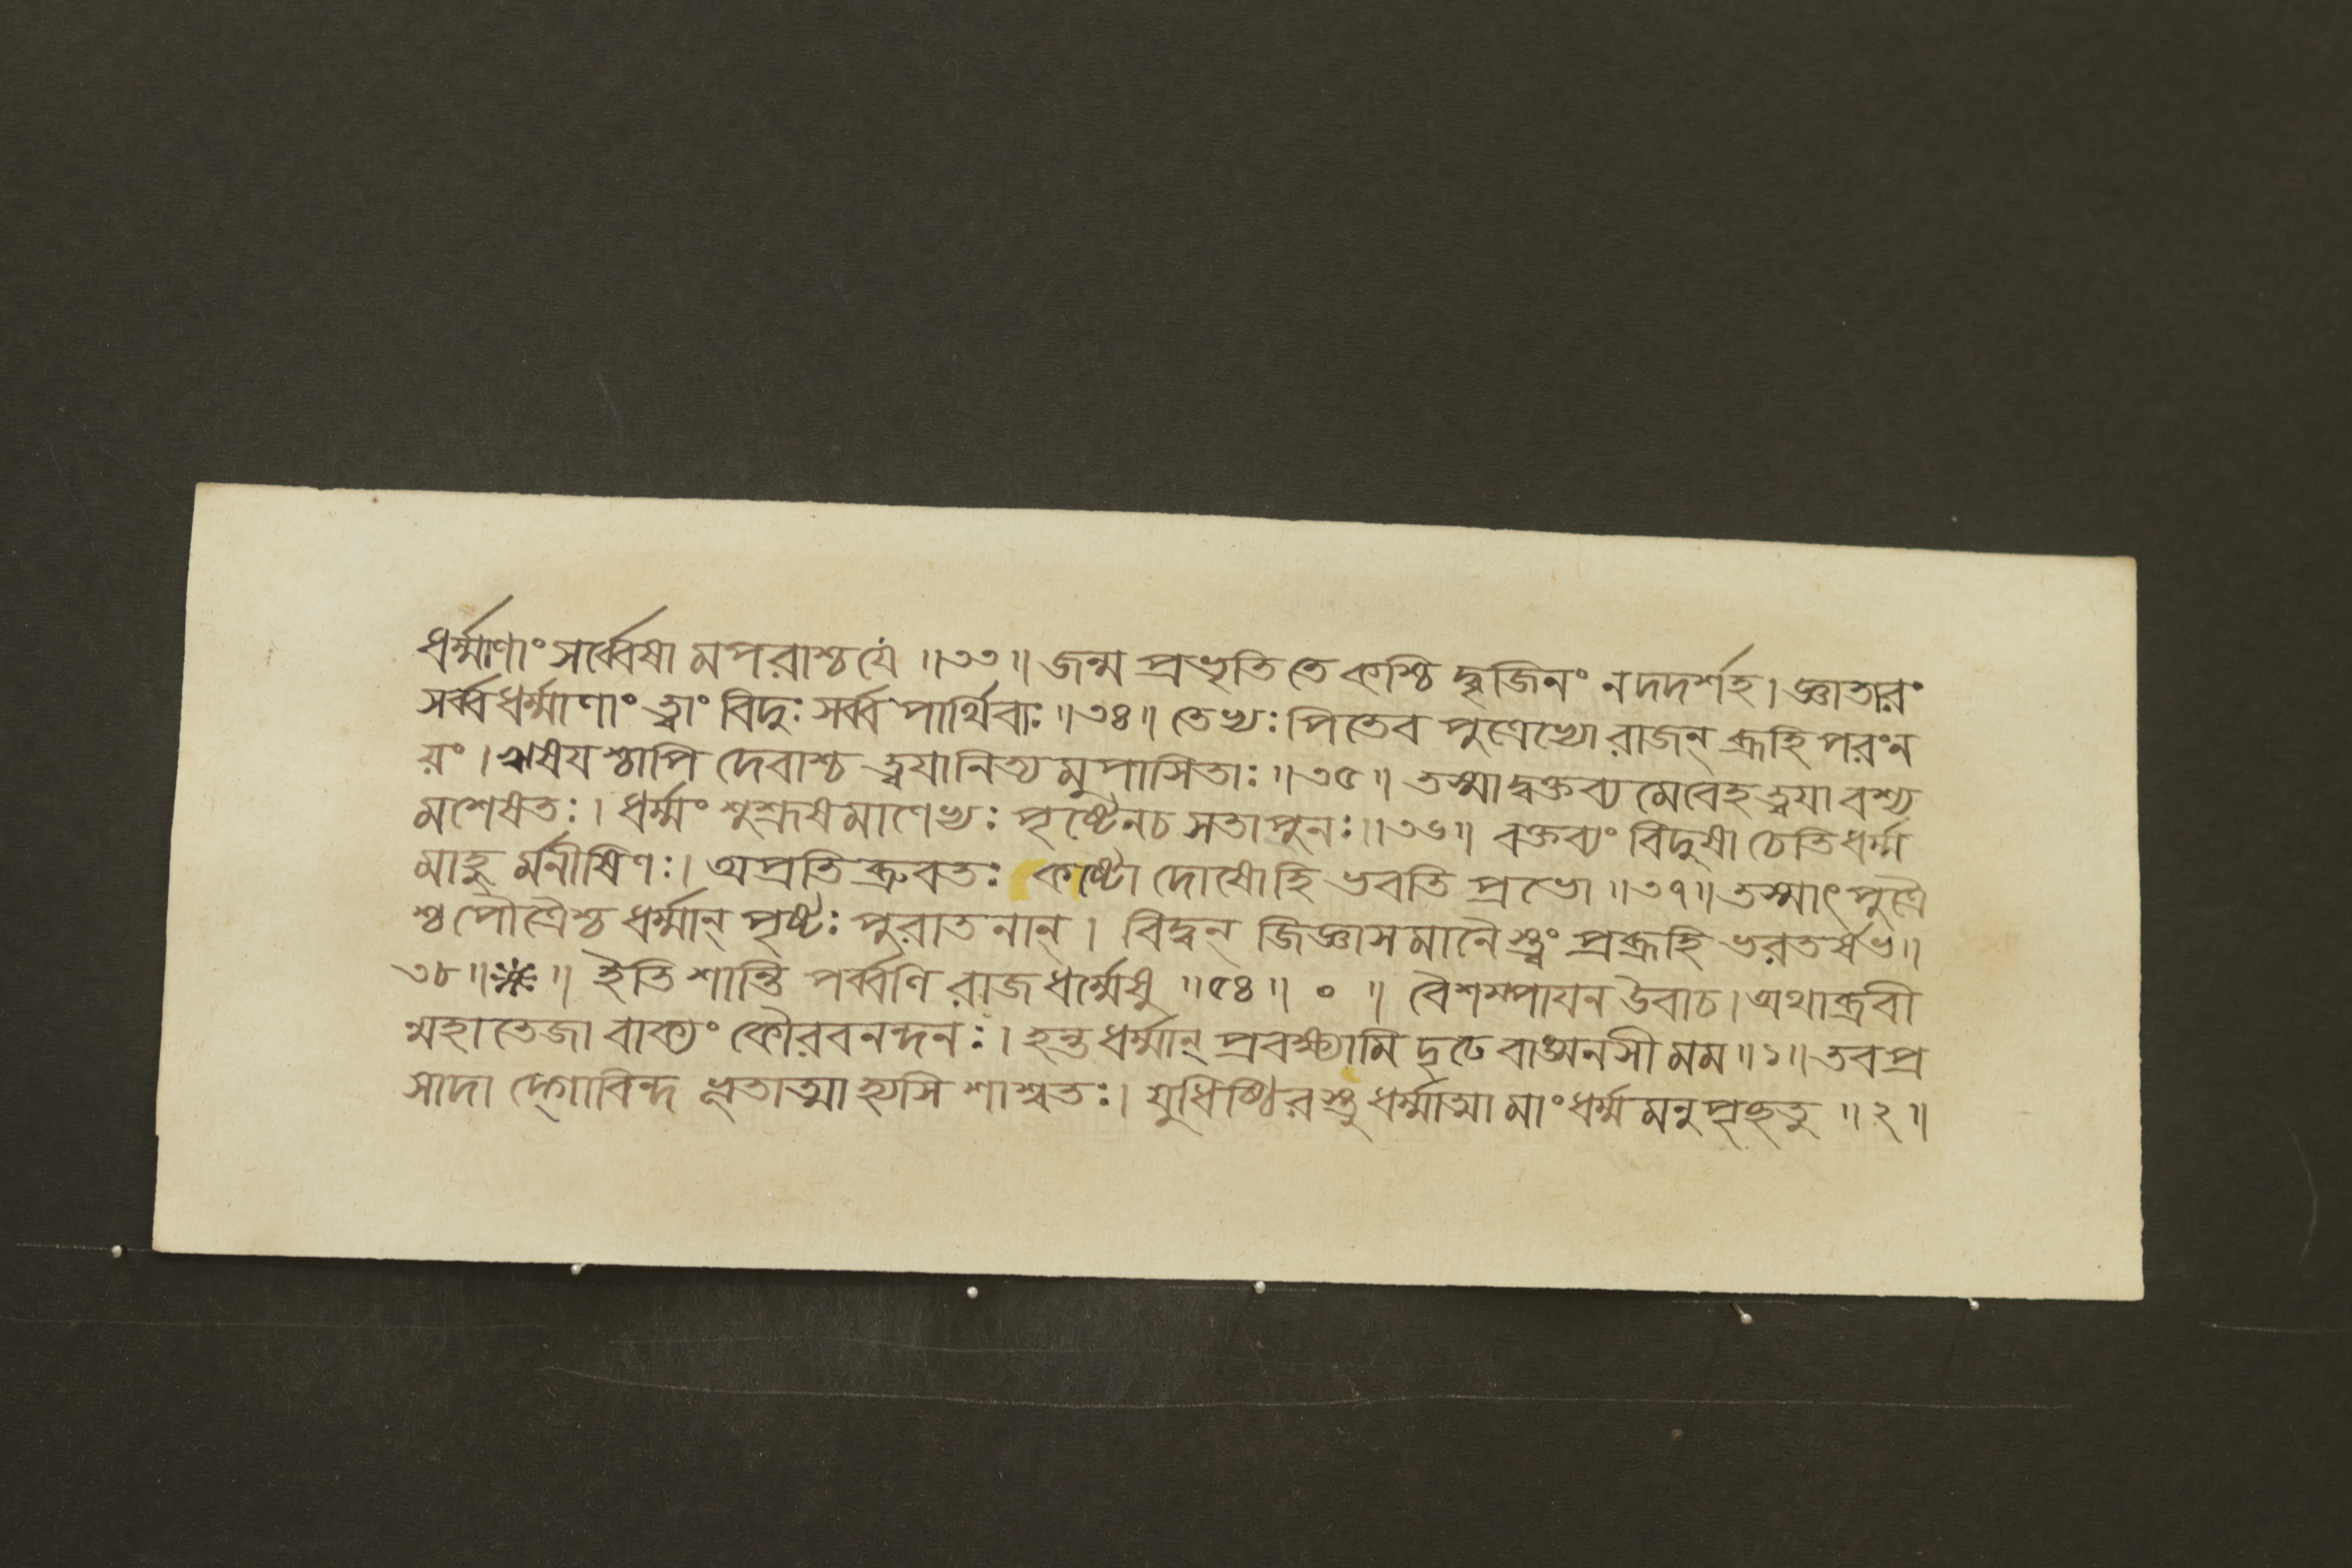 ধর্ম্মাণাং সর্ব্বেষা মপরাশ্চ যে ॥৩৩॥ জন্ম প্রভৃতি তে কশ্চি দ্বৃজিনং ন দদর্শহ। জ্ঞাতারং
সর্ব্ব ধর্ম্মাণাং ত্বাং বিদুঃ সর্ব্ব পার্থিবাঃ ॥৩৪॥ তেভ্যঃ পিতেব পুত্রেভ্যো রাজন্ ব্রূহি পরং ন
য়ং। ঋষয শ্চাপি দেবাশ্চ ত্বযা নিত্য মুপাসিতাঃ ॥৩৫॥ তস্মাদ্বক্তব্য মেবেহ ত্বযা বশ্য
মশেষতঃ। ধর্ম্মং শুশ্রূষমাণেভ্যঃ পৃষ্টেন চ সতা পুনঃ ॥৩৬॥ বক্তব্যং বিদুষা চেতি ধর্ম্ম
মাহু র্মনীষিণঃ। অপ্রতি ব্রুবতঃ কষ্টো দোষো হি ভবতি প্রভো ॥৩৭॥ তস্মাৎ পুত্রৈ
শ্চ পৌত্রৈশ্চ ধর্ম্মান্ পৃষ্টঃ পুরাতনান্। বিদ্বন্ জিজ্ঞাসমানৈ স্ত্বং প্রব্রূহি ভরতর্ষভ ॥
৩৮ ॥ ※ ॥ ইতি শান্তি পর্ব্বণি রাজ ধর্ম্মেষু ॥৫৪॥ ० ॥ বৈশম্পাযন উবাচ। অথাব্রবী
ন্মহাতেজা বাক্যং কৌরবনন্দনঃ। হন্ত ধর্ম্মান্ প্রবক্ষ্যামি দৃঢে বাঙ্মনসী মম ॥১॥ তব প্র
সাদা দ্গোবিন্দ ভূতাত্মা হ্যসি শাশ্বতঃ। যুধিষ্ঠিরস্তু ধর্ম্মাত্মা মাং ধর্ম্ম মনুপৃচ্ছতু ॥২॥